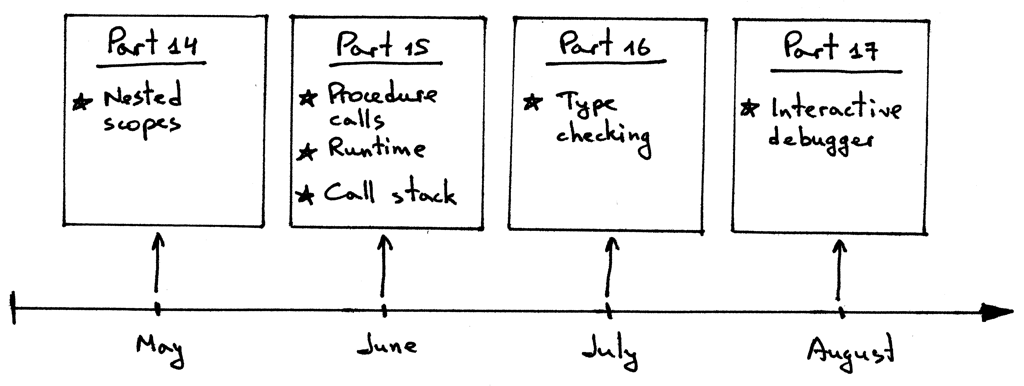 Part 14
★ Nested
scopes
Part 15
★ Procedure
calls
★ Runtime
★ Call stack
Part 16
★ Type
checking
Part 17
★ Interactive
debugger
May
June
July
August